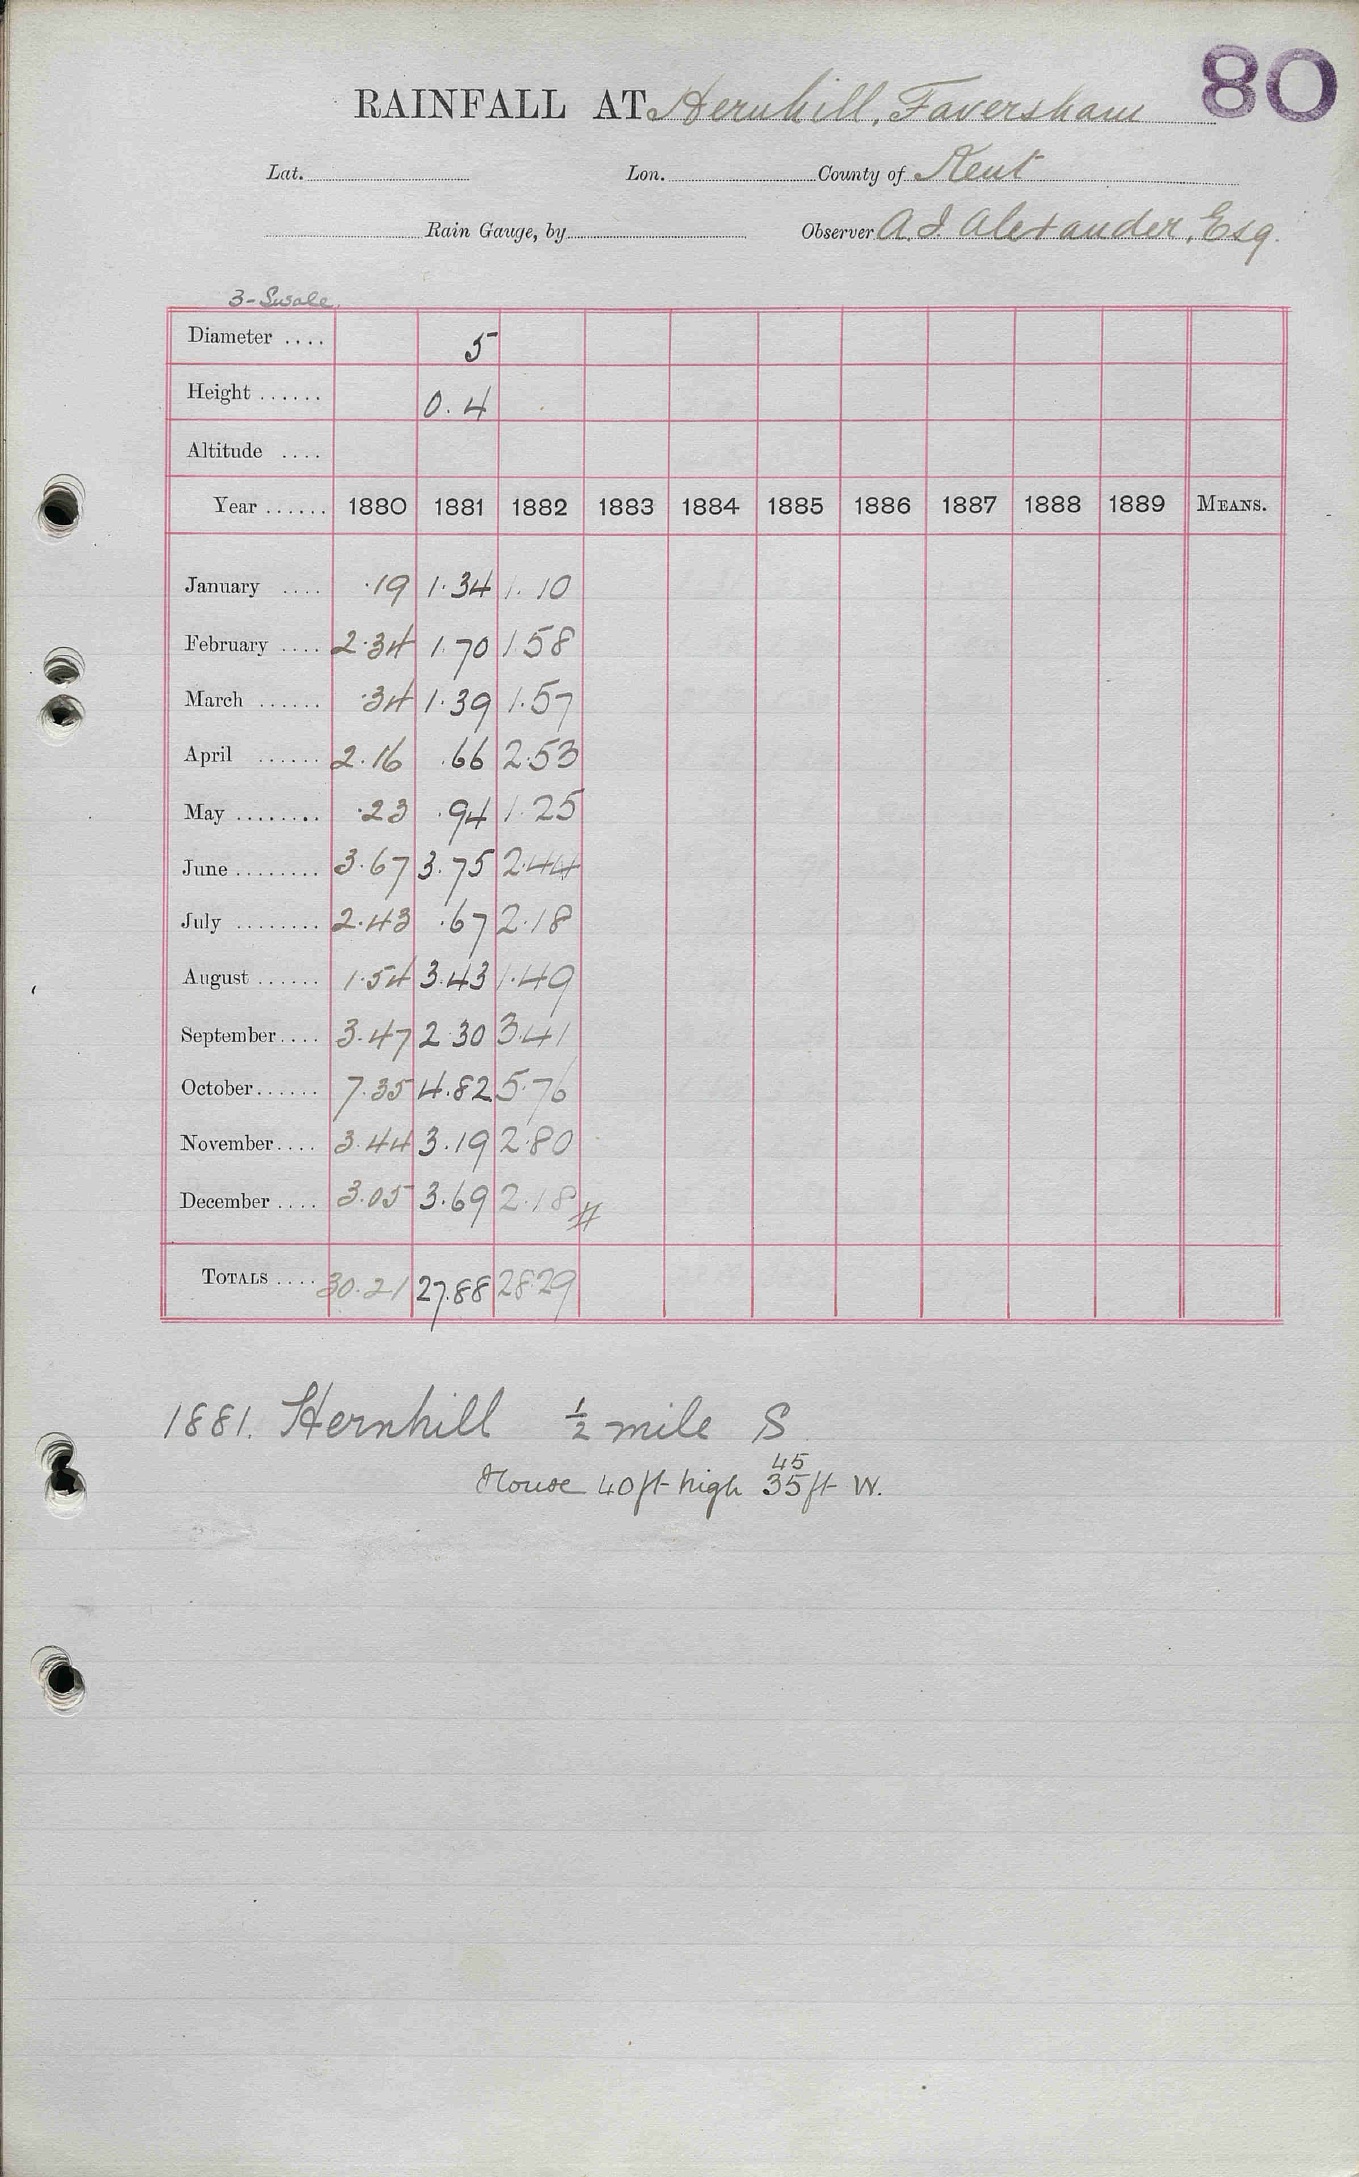 80
RAINFALL AT Hernhill, Faversham
Lat. Lon. County of Kent
Rain Gauge, by Observer A. J. Alexander, Esq.
3-Swale.
Diameter .... 5
Height ...... 0.4
Altitude ....
Year ...... 1880 1881 1882 1883 1884 1885 1886 1887 1888 1889 MEANS.
January .... .19 1.34 1.10
February .... 2.34 1.70 1.58
March ...... .34 1.39 1.57
April ...... 2.16 .66 2.53
May ........ .23 .94 1.25
June ........ 3.67 3.75 2.44
July ........ 2.43 .67 2.18
August ...... 1.54 3.43 1.49
September .... 3.47 2.30 3.41
October ...... 7.35 4.82 5.76
November .... 3.44 3.19 2.80
December .... 3.05 3.69 2.18 #
TOTALS .... 30.21 27.88 28.29
1881. Hernhill ½ mile S
45
House 40 ft high 35 ft W.